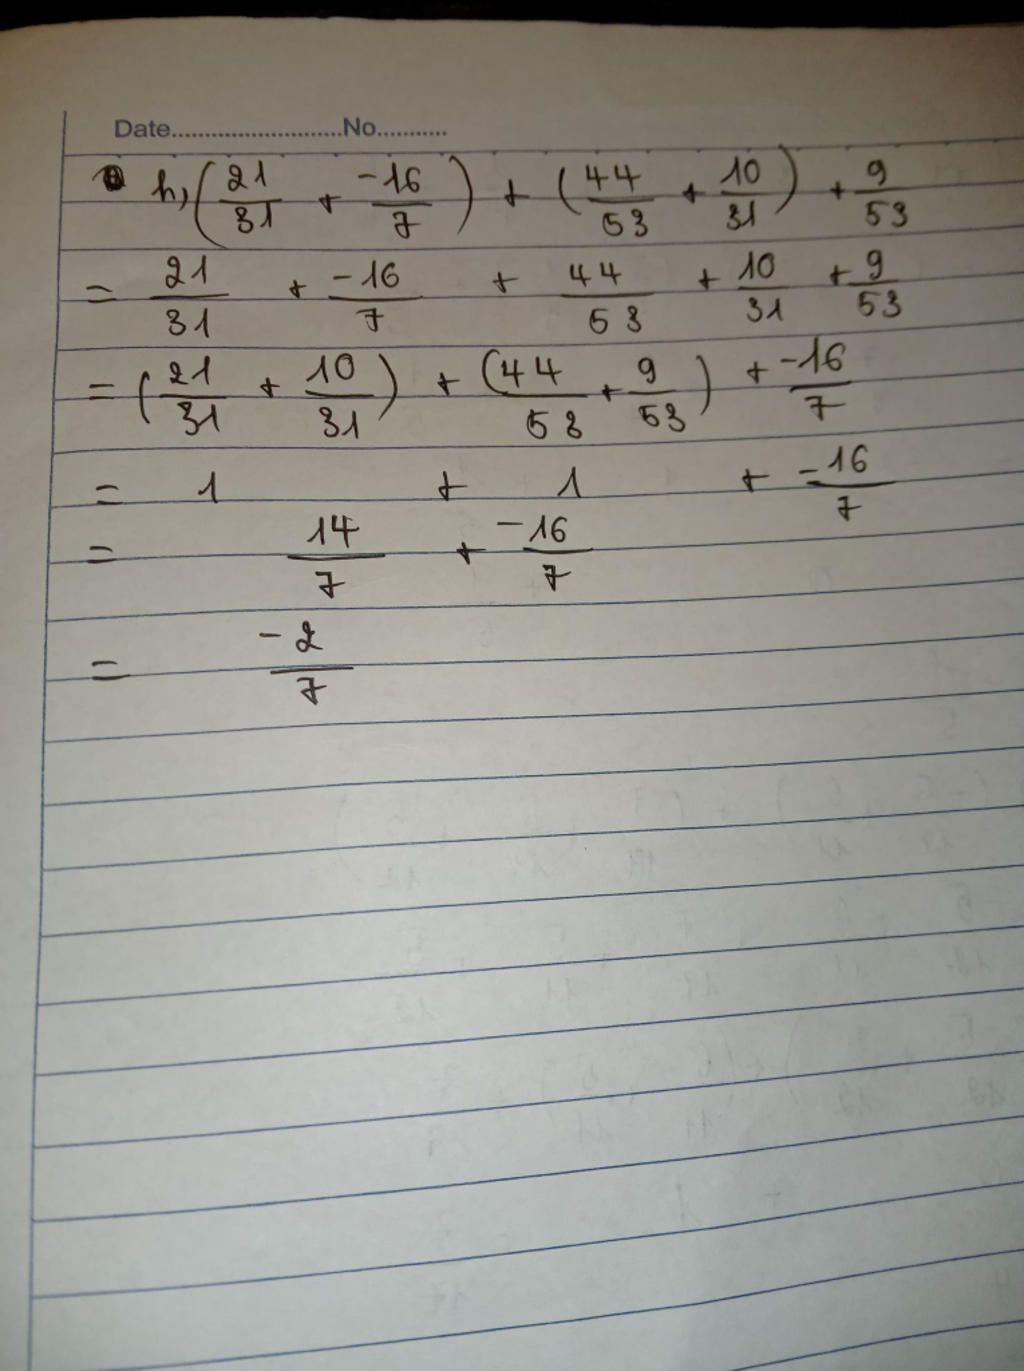 Date..........................No...........
h, (21/31 + -16/7) + (44/53 + 10/31) + 9/53
= 21/31 + -16/7 + 44/53 + 10/31 + 9/53
= (21/31 + 10/31) + (44/53 + 9/53) + -16/7
= 1 + 1 + -16/7
= 14/7 + -16/7
= -2/7